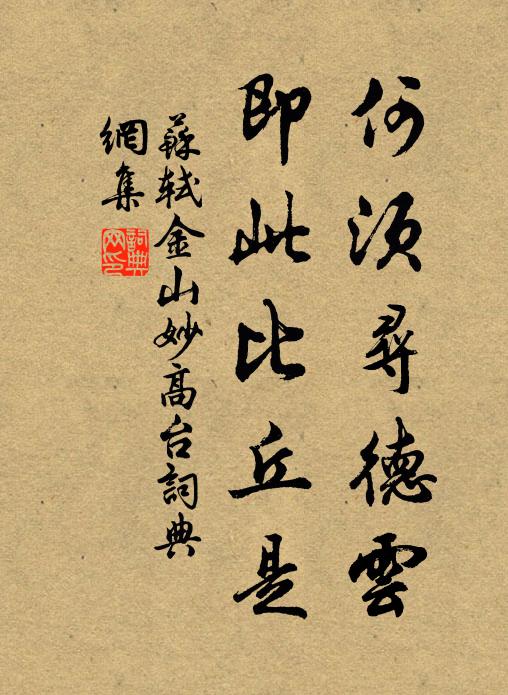 何須尋德雲
即此比丘是
蘇軾金山妙高台詞典
網集
詞典網印